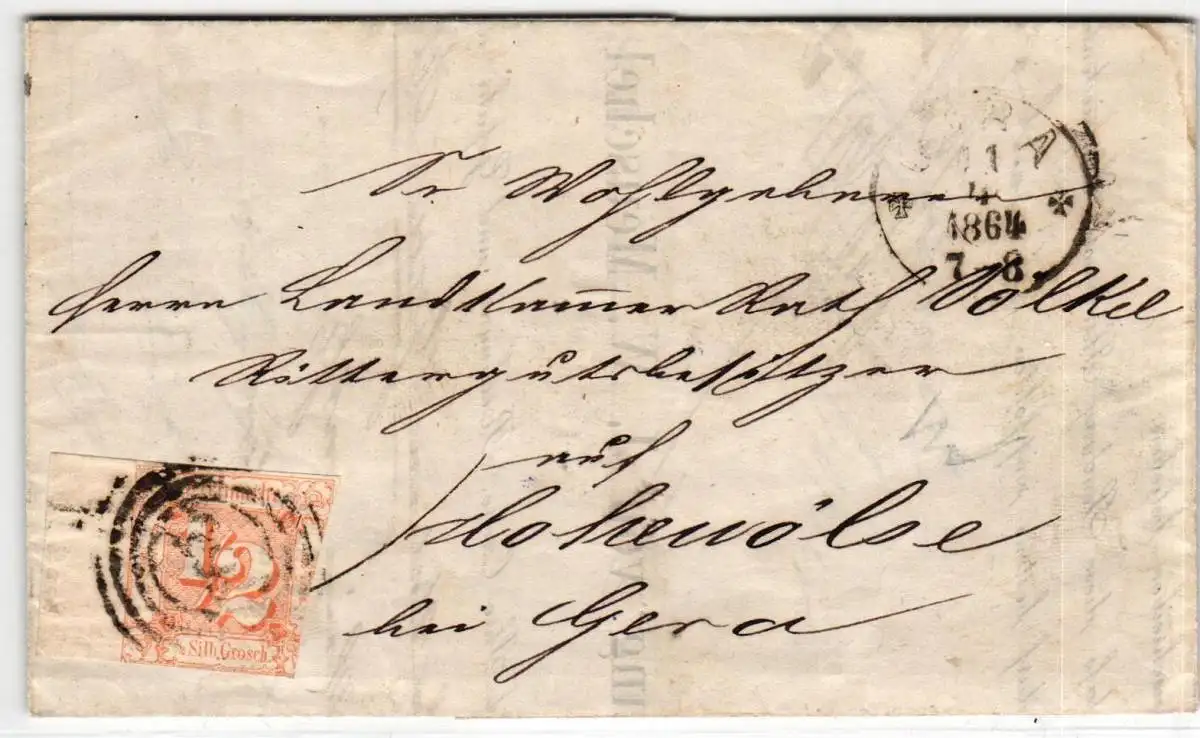 GERA
11
4
1864
7-8
Sr. Wohlgeboren
Herrn Landkammer Rath Völkel
Rittergutsbesitzer
auf
Hohenölse
bei Gera
1/2
½ Silb. Grosch.